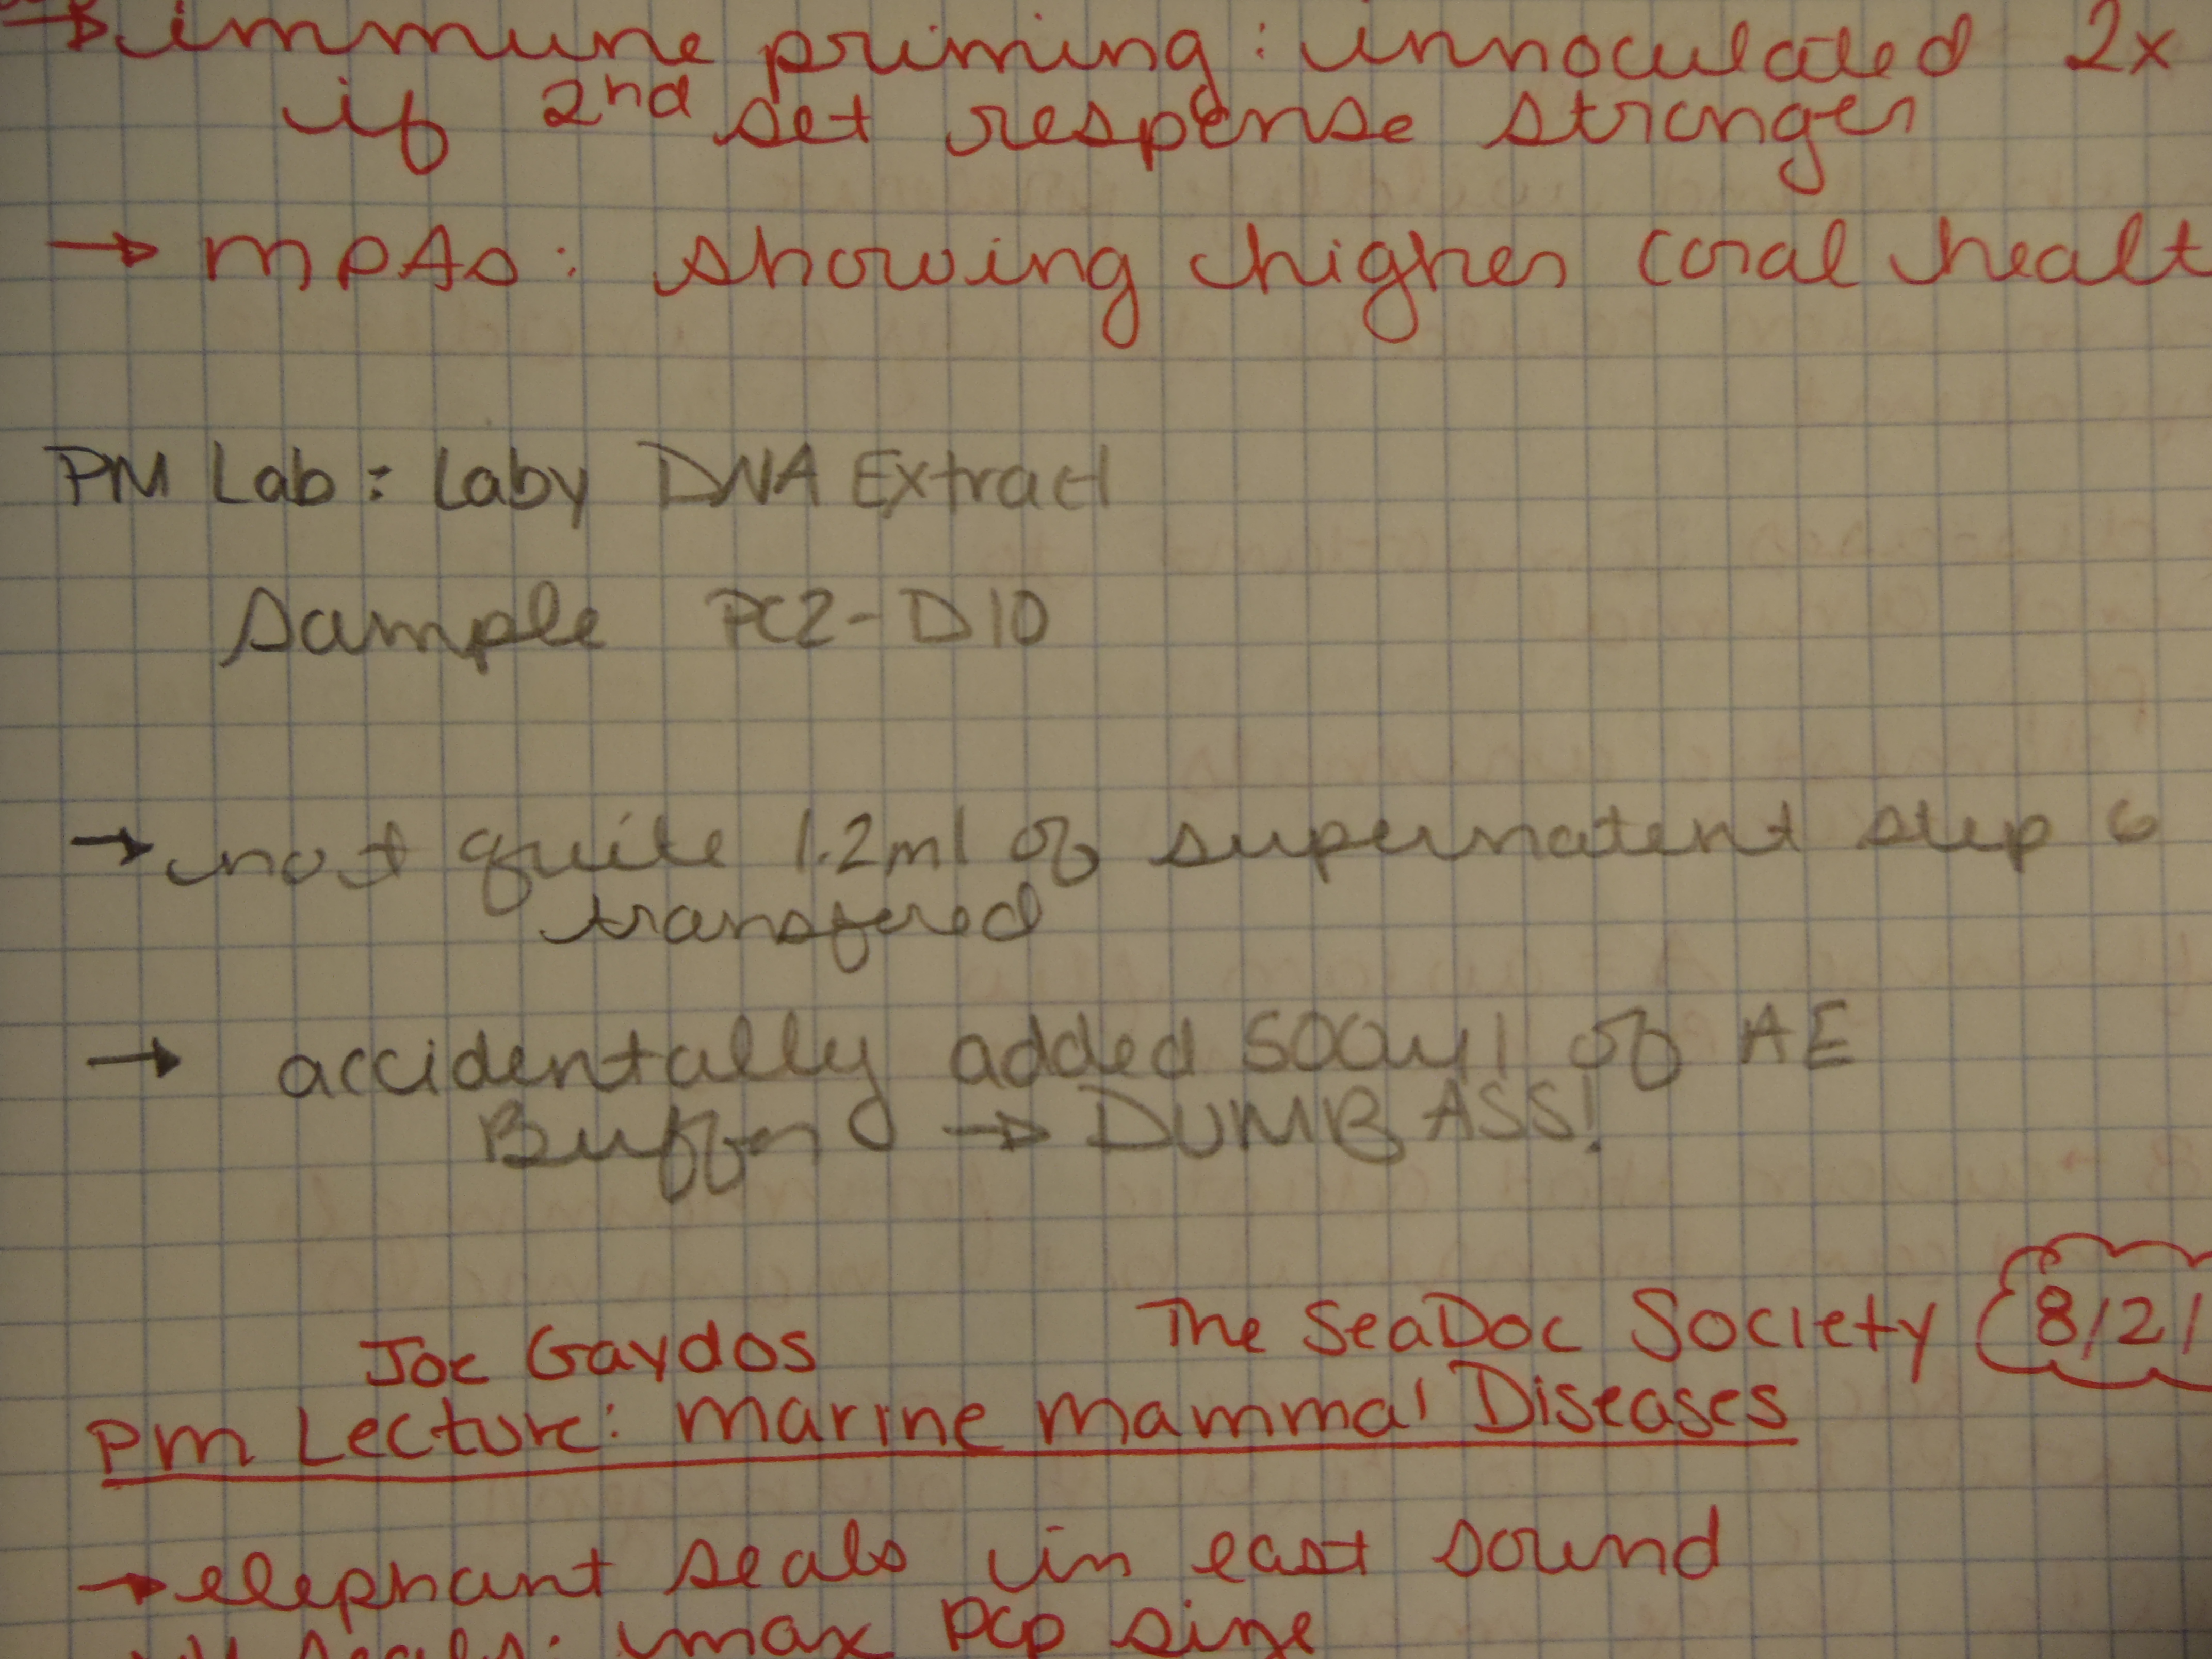 → immune priming: innoculated 2x
if 2nd set response stronger
→ MPAs: showing higher coral healt
PM Lab: Laby DNA Extract
Sample PC2-D10
→ not quite 1.2ml of supernatent step 6
transfered
→ accidentally added 500µl of AE
Buffer → DUMB ASS!
Joe Gaydos The SeaDoc Society 8/21
PM Lecture: Marine Mammal Diseases
→ elephant seals in east sound
seals: max pop size